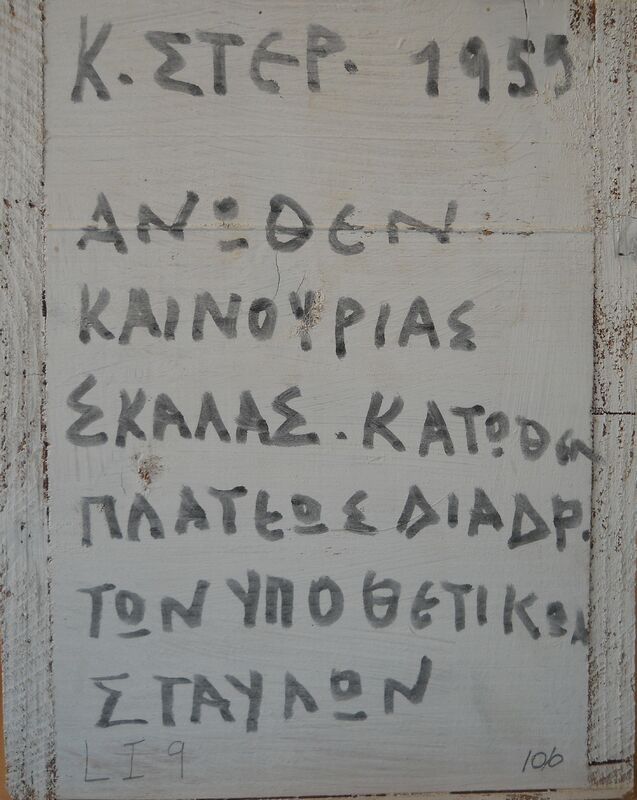 Κ. ΣΤΕΡ. 1955
ΑΝΩΘΕΝ
ΚΑΙΝΟΥΡΙΑΣ
ΣΚΑΛΑΣ. ΚΑΤΩΘΕΝ
ΠΛΑΤΕΩΣ ΔΙΑΔΡ.
ΤΩΝ ΥΠΟΘΕΤΙΚΩΝ
ΣΤΑΥΛΩΝ
LI9 106